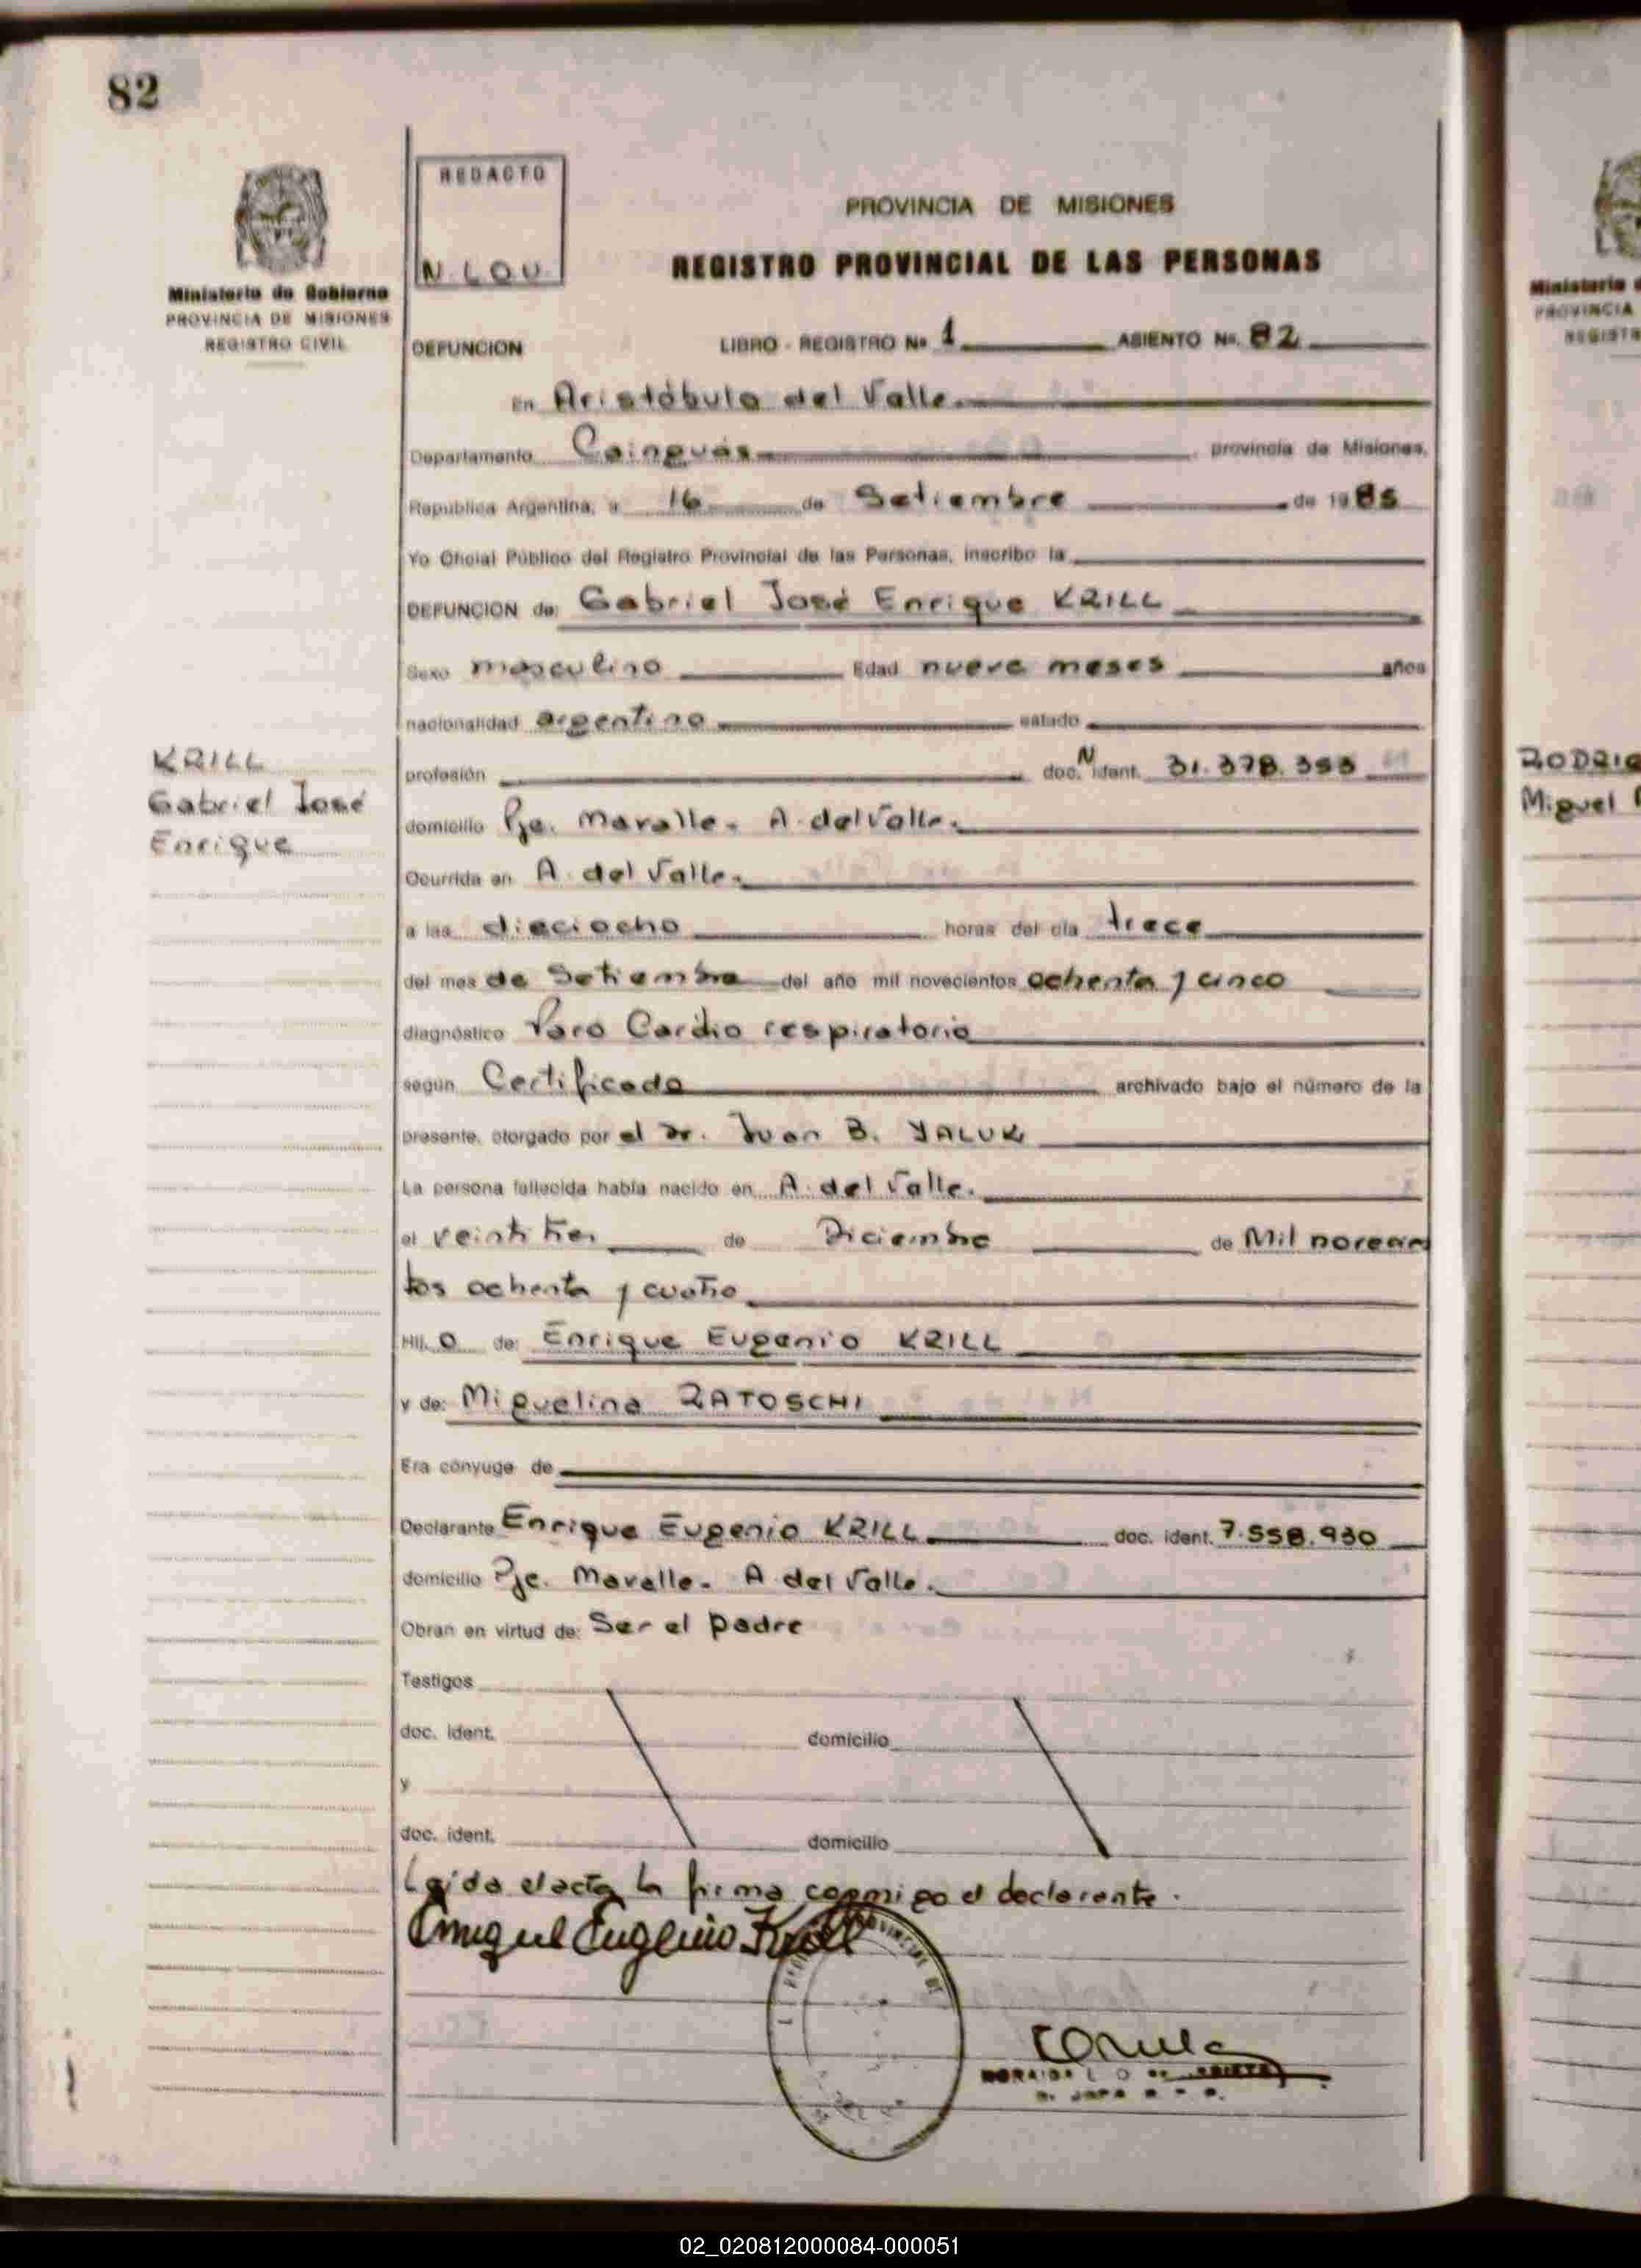 82
REDACTO
N. L. O. U.
Ministerio de Gobierno
PROVINCIA DE MISIONES
REGISTRO CIVIL
PROVINCIA DE MISIONES
REGISTRO PROVINCIAL DE LAS PERSONAS
DEFUNCION LIBRO - REGISTRO Nº 1 ASIENTO Nº. 82
En Aristóbulo del Valle.
Departamento Cainguás provincia de Misiones.
República Argentina, a 16 de Setiembre de 1985
Yo Oficial Público del Registro Provincial de las Personas, inscribo la
DEFUNCION de: Gabriel José Enrique KRILL
Sexo masculino Edad nueve meses años
nacionalidad argentino estado
KRILL
Gabriel José
Enrique
profesión doc. N ident. 31.378.353
domicilio Pje. Maralle. A. del Valle.
Ocurrida en A. del Valle.
a las dieciocho horas del día trece
del mes de Setiembre del año mil novecientos ochenta y cinco
diagnóstico Paro Cardio respiratorio
según Certificado archivado bajo el número de la
presente, otorgado por el Dr. Juan B. YALUK
La persona fallecida había nacido en A. del Valle.
el veintitres de Diciembre de Mil novecien
tos ochenta y cuatro
Hij o de: Enrique Eugenio KRILL
y de: Miguelina RATOSCHI
Era cónyuge de
Declarante Enrique Eugenio KRILL doc. ident. 7.558.930
domicilio Pje. Maralle. A del Valle.
Obran en virtud de: Ser el padre
Testigos
doc. ident. domicilio
y
doc. ident. domicilio
Leida el acta la firma conmigo el declarante.
Enrique Eugenio Krill
PROVINCIAL DE
Ministerio
PROVINCIA
REGISTR
RODRIG
Miguel
02_020812000084-000051